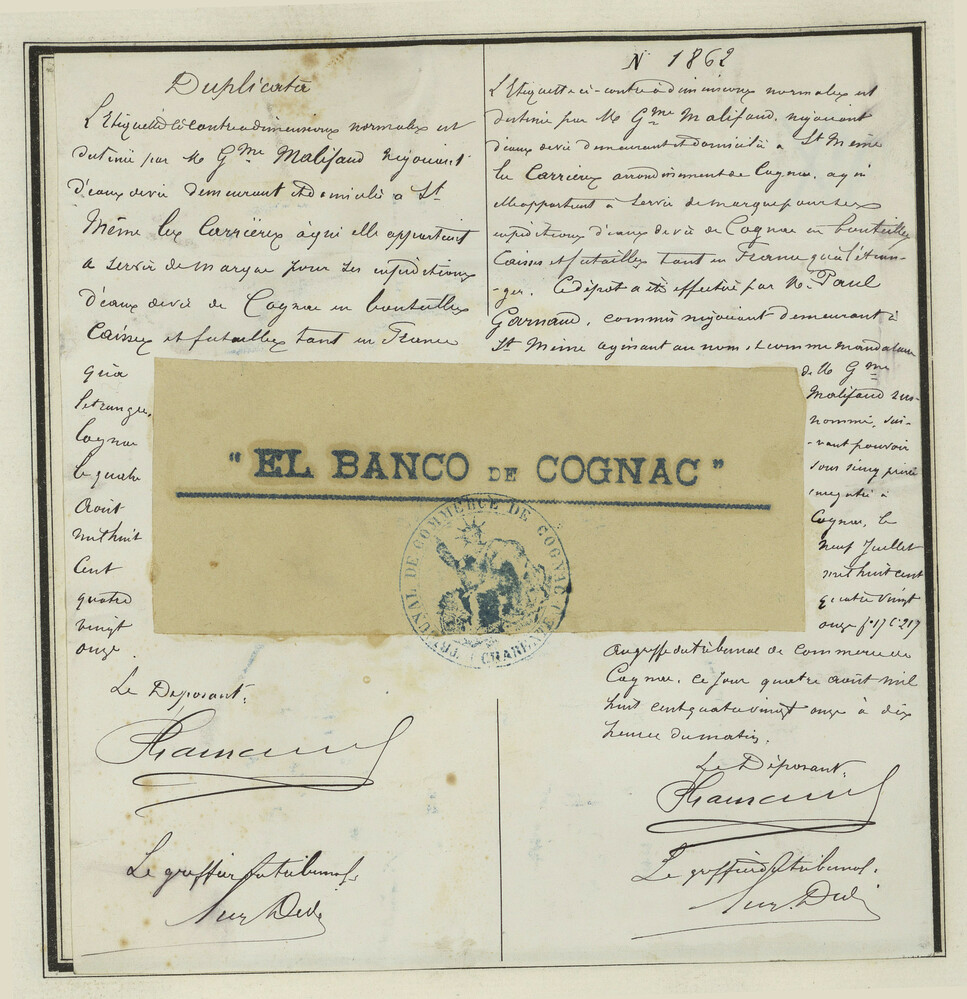 Duplicata
L'Etiquette ci contre à dimensions normales est
destinée par M Gme Malifaud Négociant
d'eaux de vie demeurant et domicilié à St
Même les Carrières à qui elle appartient
à servir de marque pour ses expéditions
d'eaux de vie de Cognac en bouteilles
Caisses et futailles tant en France
qu'à
l'étranger.
Cognac
le quatre
Août
mil huit
Cent
quatre
vingt
onze.
Le Déposant.
Le greffier du tribunal.
N° 1862
L'Etiquette ci-contre à dimensions normales est
destinée par M Gme Malifaud, négociant
d'eaux de vie demeurant et domicilié à St Même
les Carrières arrondissement de Cognac, à qui
elle appartient à servir de marque pour ses
expéditions d'eaux de vie de Cognac en bouteilles
Caisses et futailles tant en France qu'à l'étran-
-ger. Ce dépot a été effectué par M. Paul
Garnaud, commis négociant demeurant à
St Même agissant au nom et comme mandataire
de M Gme
Malifaud sus-
nommé, sui-
-vant pouvoir
sous seing privé
enregistré à
Cognac, le
neuf Juillet
mil huit cent
quatre vingt
onze f° 17 C. 217
au greffe du tribunal de commerce de
Cognac, ce jour quatre août mil
huit cent quatre vingt onze à dix
heures du matin.
Le Déposant.
Le greffier du tribunal.
"EL BANCO DE COGNAC"
TRIBUNAL DE COMMERCE DE COGNAC (CHARENTE)